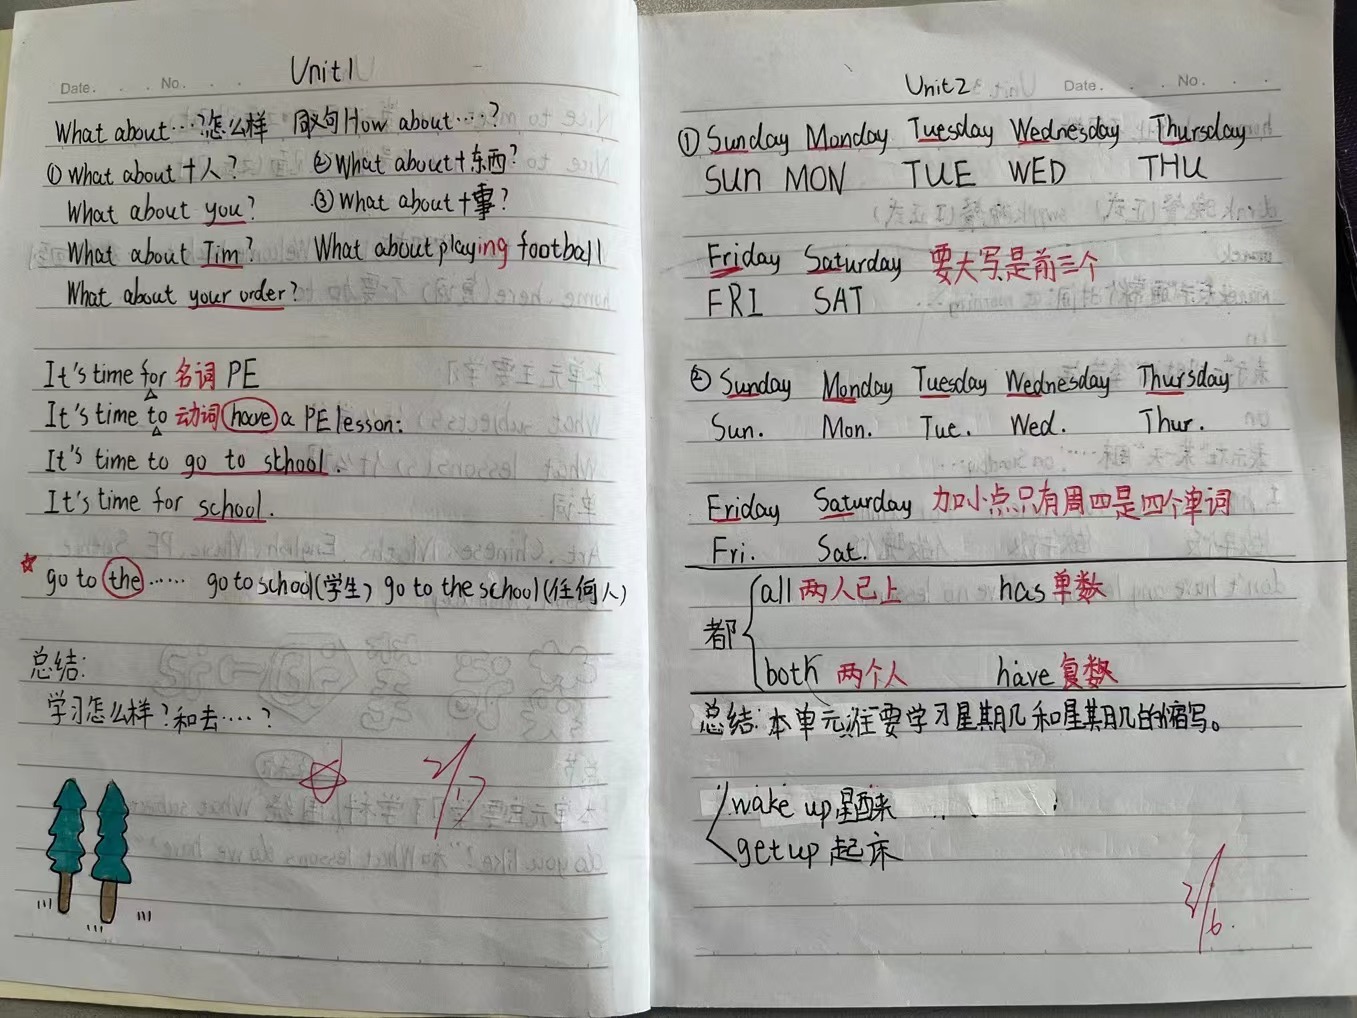 Unit1
Date. . . No. . . .
What about…?怎么样 同义句How about…?
①What about+人? ②What about+东西?
What about you? ③What about+事?
What about Tim? What about playing football
What about your order?
It's time for 名词 PE
It's time to 动词 have a PE lesson.
It's time to go to school.
It's time for school.
☆ go to the…… go to school(学生) go to the school(任何人)
总结:
学习怎么样?和去……?
Unit2
Date. . . No. . . .
①Sunday Monday Tuesday Wednesday Thursday
SUN MON TUE WED THU
Friday Saturday 要大写是前三个
FRI SAT
②Sunday Monday Tuesday Wednesday Thursday
Sun. Mon. Tue. Wed. Thur.
Friday Saturday 加小点只有周四是四个单词
Fri. Sat.
都
all 两人已上 has 单数
both 两个人 have 复数
总结:本单元主要学习星期几和星期几的缩写。
wake up 醒来
get up 起床
2/6.